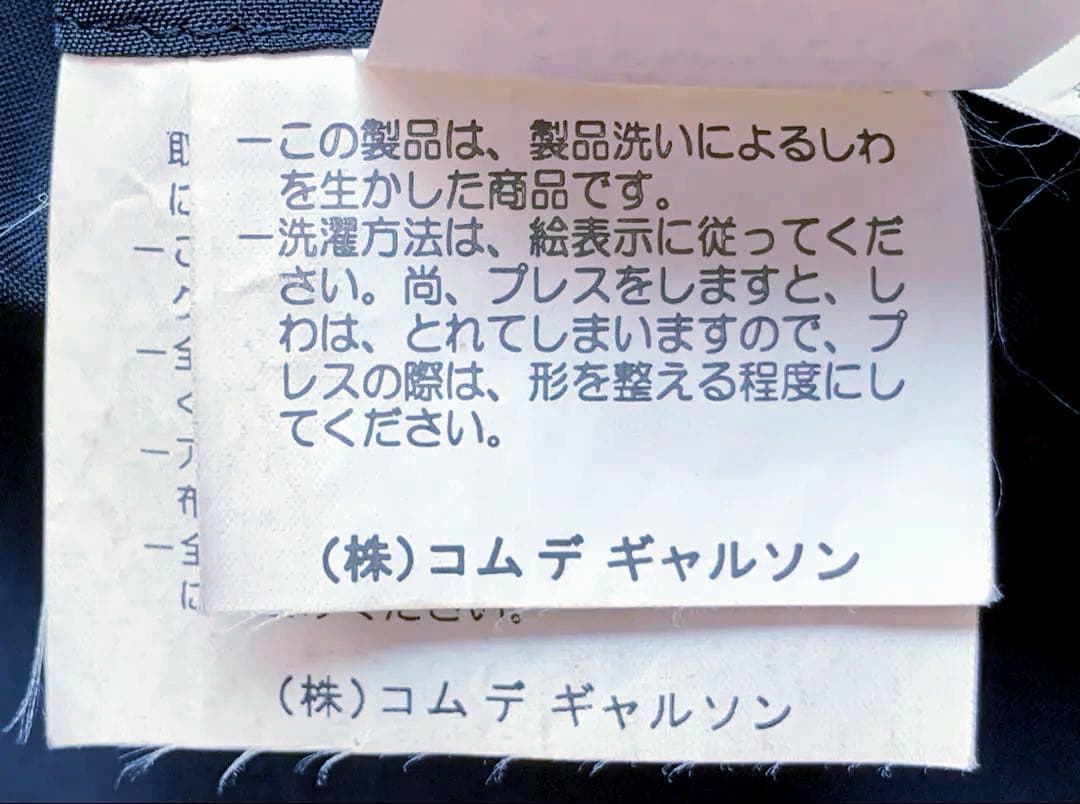 ーこの製品は、製品洗いによるしわ
を生かした商品です。
ー洗濯方法は、絵表示に従ってくだ
さい。尚、プレスをしますと、し
わは、とれてしまいますので、プ
レスの際は、形を整える程度にし
てください。
(株)コム デ ギャルソン
取
に
ーこ
ー全
く
ーア
布
ー全
に
ください。
(株)コム デ ギャルソン